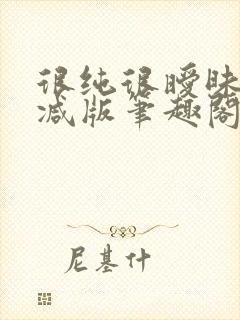 很纯很暧昧
减版笔趣阁
尼基什